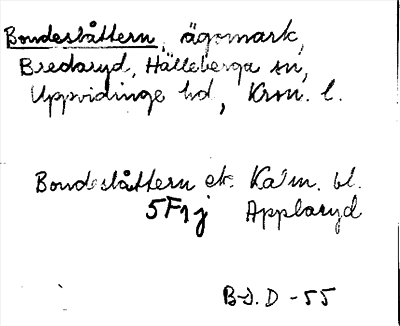 Bondeslåttern, ägomark,
Bredaryd, Hälleberga sn,
Uppvidinge hd, Kron. l.
Bondeslåttern ek. Kalm. bl.
5F1j Applaryd
B-J. D - 55